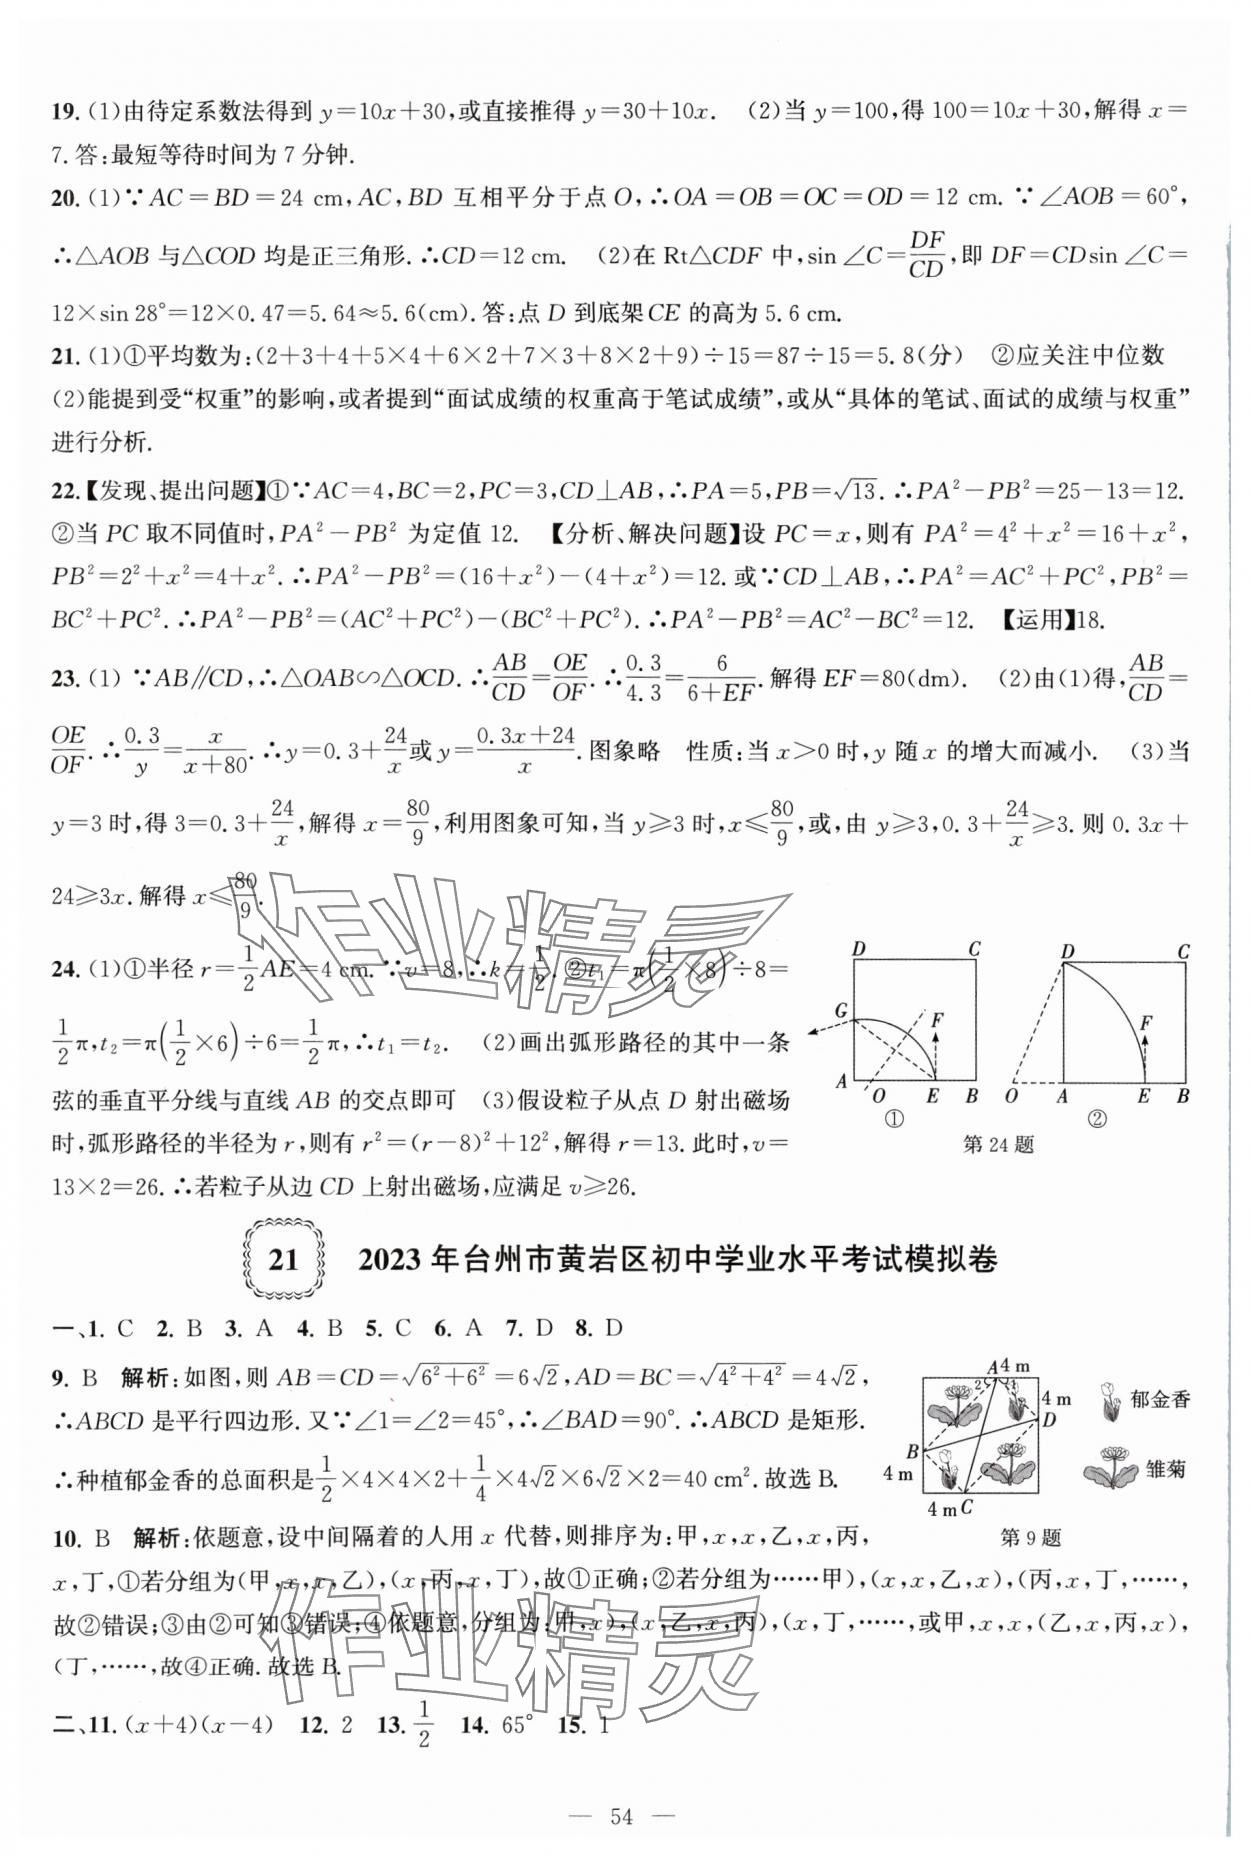 19. (1)由待定系数法得到 y=10x+30,或直接推得 y=30+10x. (2)当 y=100,得 100=10x+30,解得 x=
7. 答:最短等待时间为 7 分钟.
20. (1)∵AC=BD=24 cm,AC,BD 互相平分于点 O,∴OA=OB=OC=OD=12 cm. ∵∠AOB=60°,
∴△AOB 与△COD 均是正三角形. ∴CD=12 cm. (2)在 Rt△CDF 中,sin∠C=DF/CD,即 DF=CDsin∠C=
12×sin 28°=12×0.47=5.64≈5.6(cm). 答:点 D 到底架 CE 的高为 5.6 cm.
21. (1)①平均数为:(2+3+4+5×4+6×2+7×3+8×2+9)÷15=87÷15=5.8(分) ②应关注中位数
(2)能提到受“权重”的影响,或者提到“面试成绩的权重高于笔试成绩”,或从“具体的笔试、面试的成绩与权重”
进行分析.
22.【发现、提出问题】①∵AC=4,BC=2,PC=3,CD⊥AB,∴PA=5,PB=√13. ∴PA²-PB²=25-13=12.
②当 PC 取不同值时,PA²-PB² 为定值 12. 【分析、解决问题】设 PC=x,则有 PA²=4²+x²=16+x²,
PB²=2²+x²=4+x². ∴PA²-PB²=(16+x²)-(4+x²)=12. 或∵CD⊥AB,∴PA²=AC²+PC²,PB²=
BC²+PC². ∴PA²-PB²=(AC²+PC²)-(BC²+PC²). ∴PA²-PB²=AC²-BC²=12. 【运用】18.
23. (1) ∵AB∥CD,∴△OAB∽△OCD. ∴AB/CD=OE/OF. ∴0.3/4.3=6/(6+EF). 解得 EF=80(dm). (2)由(1)得,AB/CD=
OE/OF. ∴0.3/y=x/(x+80). ∴y=0.3+24/x或 y=(0.3x+24)/x. 图象略 性质:当 x>0 时,y 随 x 的增大而减小. (3)当
y=3 时,得 3=0.3+24/x,解得 x=80/9,利用图象可知,当 y≥3 时,x≤80/9,或,由 y≥3,0.3+24/x≥3. 则 0.3x+
24≥3x. 解得 x≤80/9.
24. (1)①半径 r=1/2AE=4 cm. ∵v=8,∴k=1/2. ②t₁=π(1/2×8)÷8=
1/2π,t₂=π(1/2×6)÷6=1/2π,∴t₁=t₂. (2)画出弧形路径的其中一条
弦的垂直平分线与直线 AB 的交点即可 (3)假设粒子从点 D 射出磁场
时,弧形路径的半径为 r,则有 r²=(r-8)²+12²,解得 r=13. 此时,v=
13×2=26. ∴若粒子从边 CD 上射出磁场,应满足 v≥26.
D C
G F
A O E B
①
D C
F
O A E B
②
第 24 题
21 2023 年台州市黄岩区初中学业水平考试模拟卷
一、1. C 2. B 3. A 4. B 5. C 6. A 7. D 8. D
9. B 解析:如图,则 AB=CD=√(6²+6²)=6√2,AD=BC=√(4²+4²)=4√2,
∴ABCD 是平行四边形. 又∵∠1=∠2=45°,∴∠BAD=90°. ∴ABCD 是矩形.
∴种植郁金香的总面积是1/2×4×4×2+1/4×4√2×6√2×2=40 cm². 故选 B.
A 4 m
2 1 4 m
D
B
4 m
4 m C
郁金香
雏菊
第 9 题
10. B 解析:依题意,设中间隔着的人用 x 代替,则排序为:甲,x,x,乙,x,丙,
x,丁,①若分组为(甲,x,x,乙),(x,丙,x,丁),故①正确;②若分组为……甲),(x,x,乙,x),(丙,x,丁,……,
故②错误;③由②可知③错误;④依题意,分组为:甲,x),(x,乙,x,丙),(x,丁,……,或甲,x,x,(乙,x,丙,x),
(丁,……,故④正确. 故选 B.
二、11. (x+4)(x-4) 12. 2 13. 1/2 14. 65° 15. 1
— 54 —
作业精灵
作业精灵